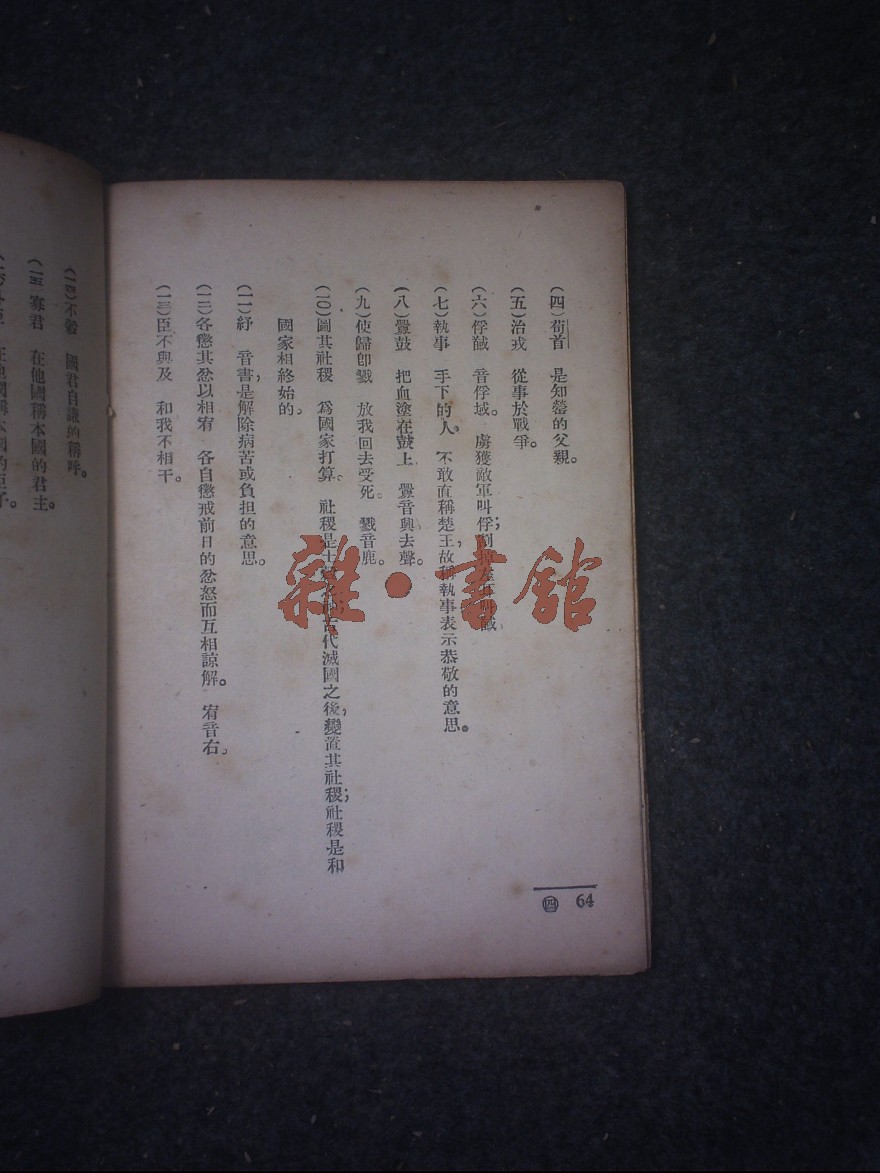 (四)荀首　是知罃的父親。
(五)治戎　從事於戰爭。
(六)俘馘　音俘域。　虜獲敵軍叫俘;割
(七)執事　手下的人。不敢直稱楚王,故稱執事表示恭敬的意思。
(八)釁鼓　把血塗在鼓上　釁音興去聲。
(九)使歸卽戮　放我回去受死。　戮音鹿。
(一〇)圖其社稷　爲國家打算。　社稷是土 古代滅國之後,變置其社稷;社稷是和
國家相終始的。
(一一)紓　音書,是解除病苦或負担的意思。
(一二)各懲其忿以相宥　各自懲戒前日的忿怒而互相諒解。　宥音右。
(一三)臣不與及　和我不相干。
(一四)不穀　國君自謙的稱呼。
(一五)寡君　在他國稱本國的君主。
64
四
雜·書館